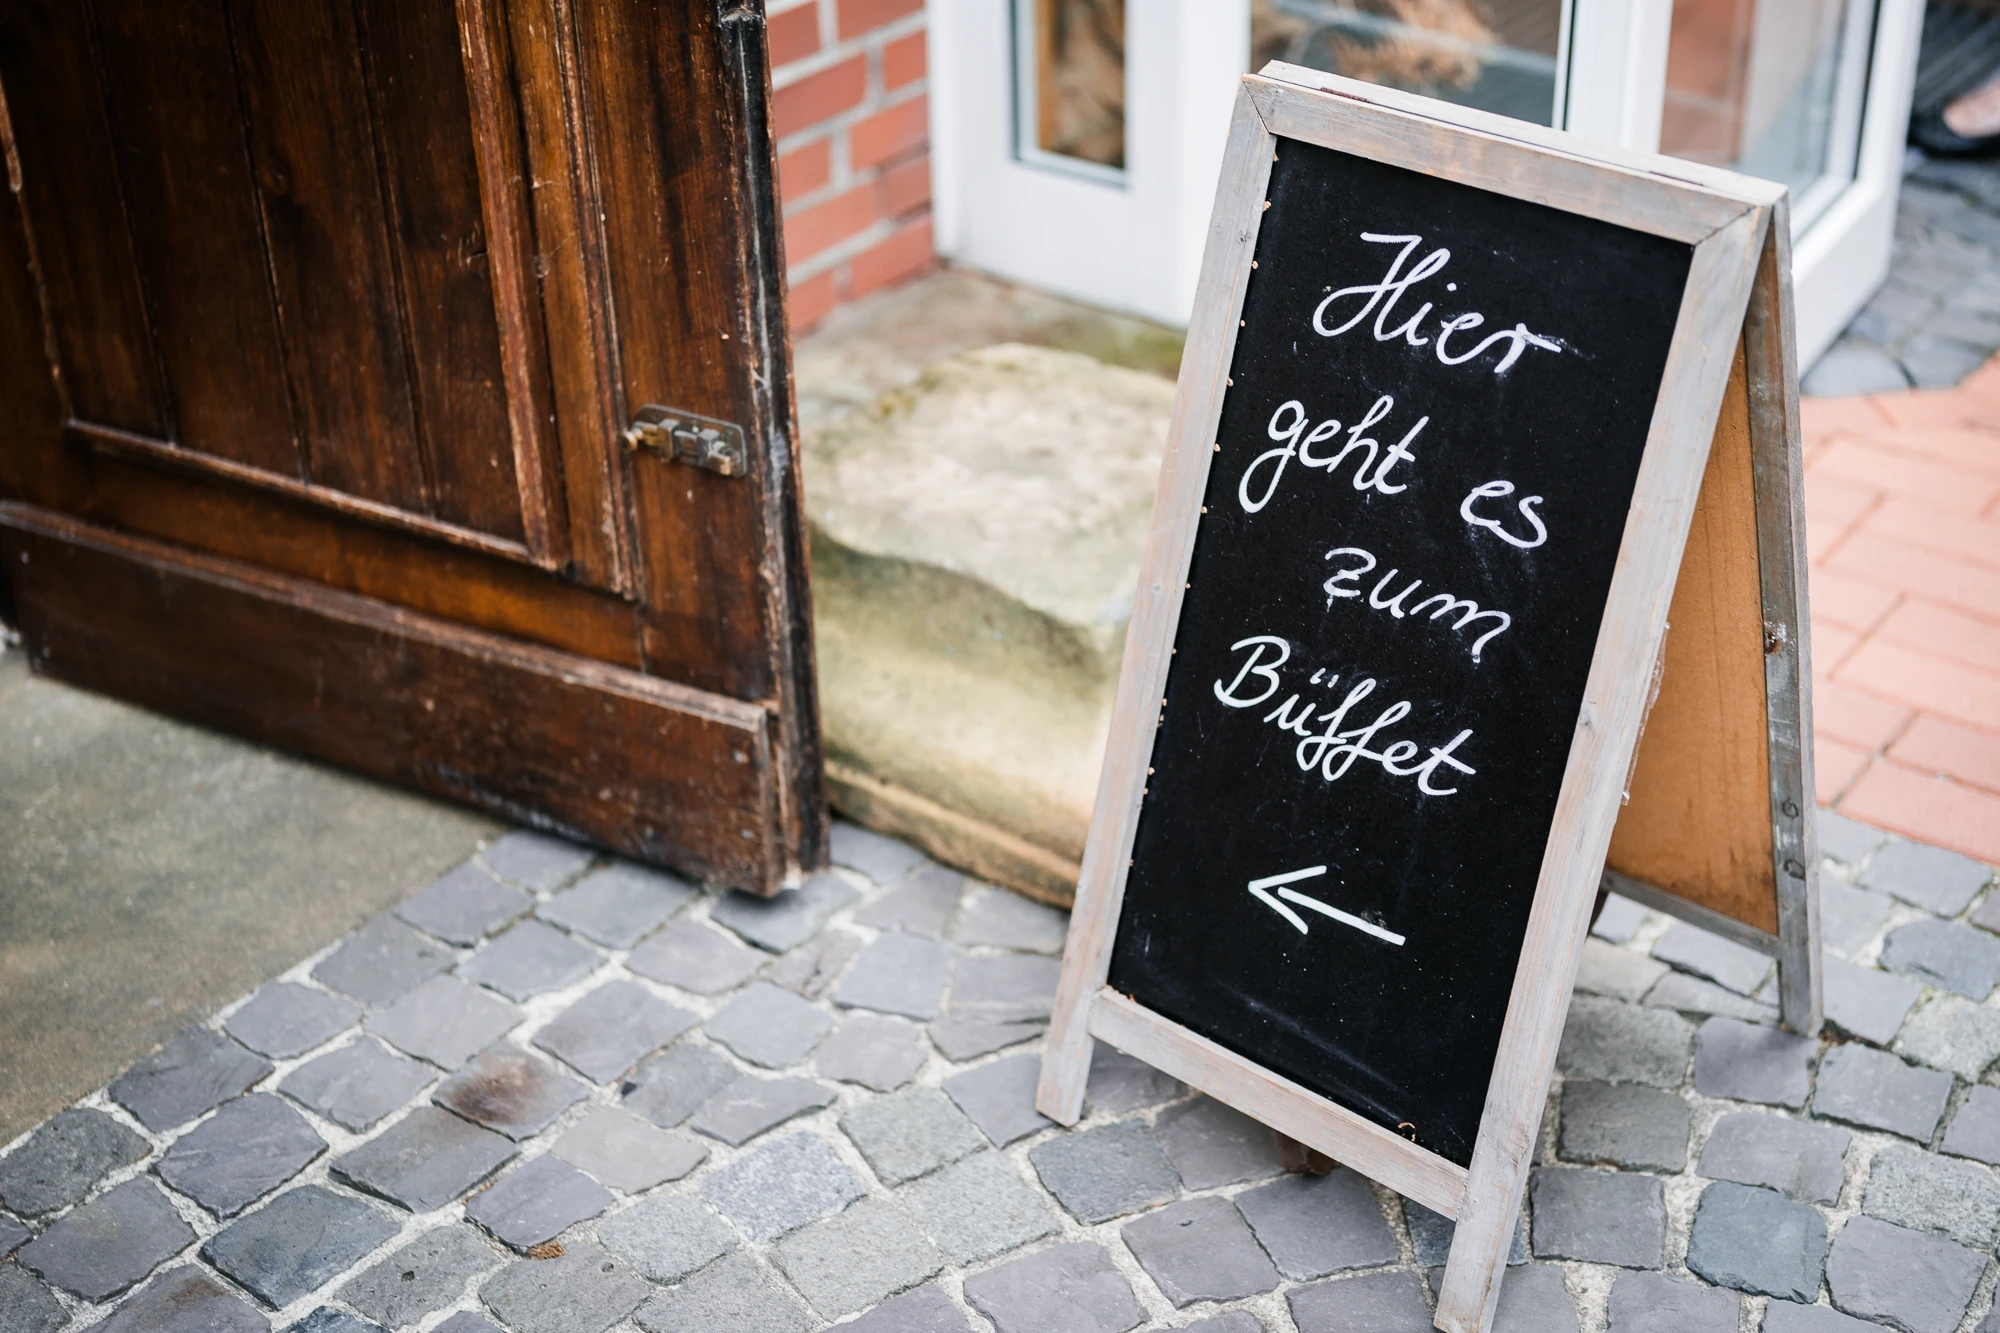 Hier
geht es
zum
Büffet
←